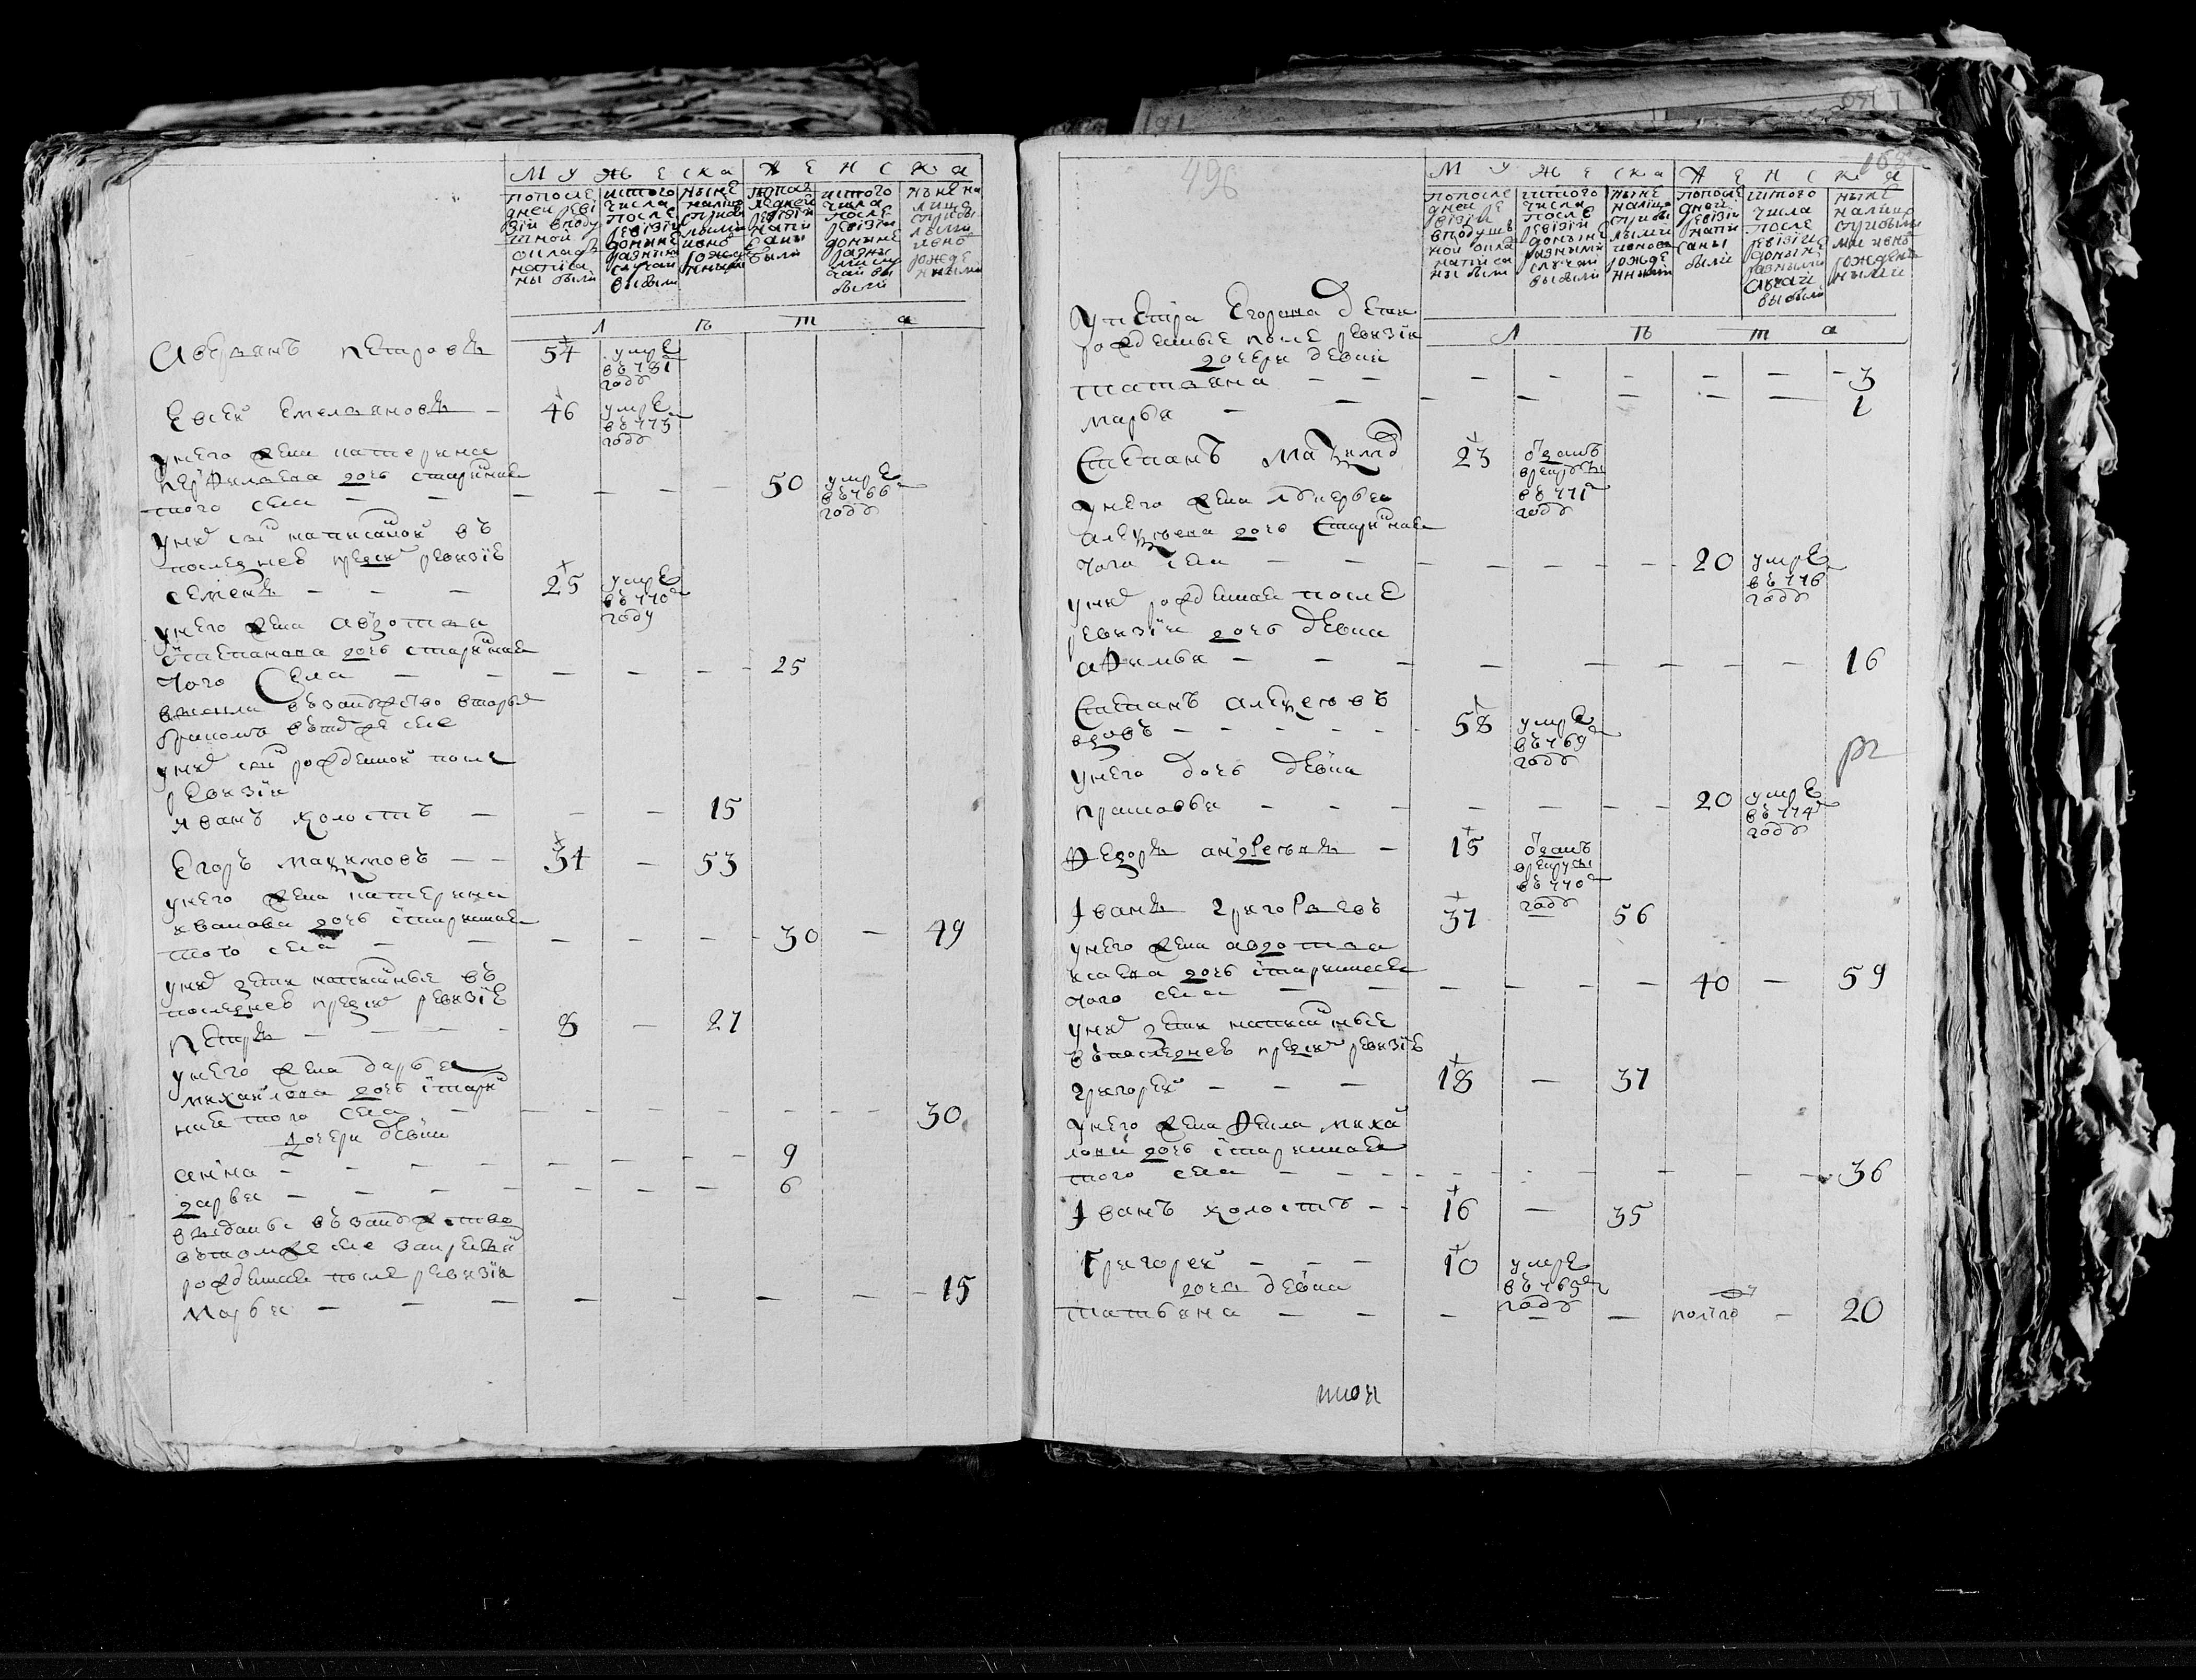 МУЖЕСКА ЖЕНСКА
попоследней ревізіи вподушной окладъ написаны были
истого числа после ревізіи доныне разными случаи выбыли
ныне налицо сприбылыми ивновь рожденными
попоследней ревізіи написаны были
истого числа после ревізіи доныне разными случаи выбыли
ныне налицо сприбылыми ивновь рожденными
Л Ѣ Т А
Аверьянъ Петровъ 54 умре въ 781 году
Евсей Емельяновъ – 46 умре въ 773 году
унего жена катерина
перфильева дочь старинная
того села – 50 умре въ 766 году
у них сынъ написанной въ
последней пред сей ревизіе
Семенъ – – – 25 умре въ 770 году
унего жена авдотья
степанова дочь старинная
того Села – – 25
вышла въ замужство вторымъ
браком въ том же селе
у них сынъ рожденной после
ревизіи
иванъ холостъ – – – 15
Егоръ Максимовъ – – 34 – 53
унего жена катерина
иванова дочь старинная
того села – – 30 – 49
у них дети написанные въ
последней пред сей ревизіе
Петръ – – – 8 – 27
унего жена дарья
михайлова дочь старин
ная того села – 30
дочери девки
анна – – – 9
дарья – – – 6
выданы въ замужство
въ том же селе
рожденная после ревизіи
Марья – – – 15
496
МУЖЕСКА ЖЕНСКА
попоследней ревізіи вподушной окладъ написаны были
истого числа после ревізіи доныне разными случаи выбыли
ныне налицо сприбылыми ивновь рожденными
попоследней ревізіи написаны были
истого числа после ревізіи доныне разными случаи выбыли
ныне налицо сприбылыми ивновь рожденными
Л Ѣ Т А
У петра Егорова дети
рожденные после ревизіи
дочери девки
татьяна – – 3
марья – – 1
Степанъ 23 отданъ в рекруты въ 771 году
унего жена
дочь Старинная
того села – – 20 умре въ 776 году
у них рожденная после
ревизіи дочь девка
афимья – – 16
Степанъ алексеевъ
вдовъ – – – 58 умре въ 769 году
унего дочь девка
прасковья – – – 20 умре въ 774 году
Федоръ андреевъ – 15 отданъ в рекруты въ 770 году
Иванъ Григорьевъ 37 56
унего жена авдотья
дочь старинная
того села – – 40 – 59
у них дети написанные
въ последней пред сей ревизіе
григорей – – – 18 – 37
унего жена фекла михай
лова дочь старинная
того села – – 36
Иванъ холостъ – – 16 – 35
Григорей – – – 10 умре въ 765 году
дочь девка
татьяна – – полго – 20